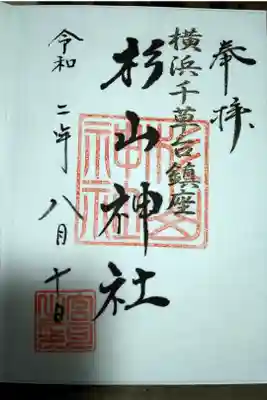 奉拝
横浜千萬台鎮座
杉山神社
令和二年八月十日
杉山神社